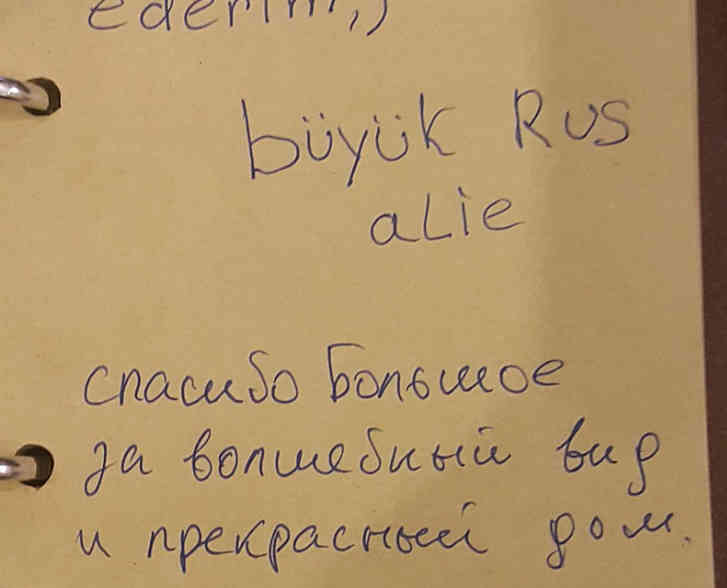 ederim,)
büyük Rus
aLie
спасибо большое
за волшебный вид
и прекрасный дом.